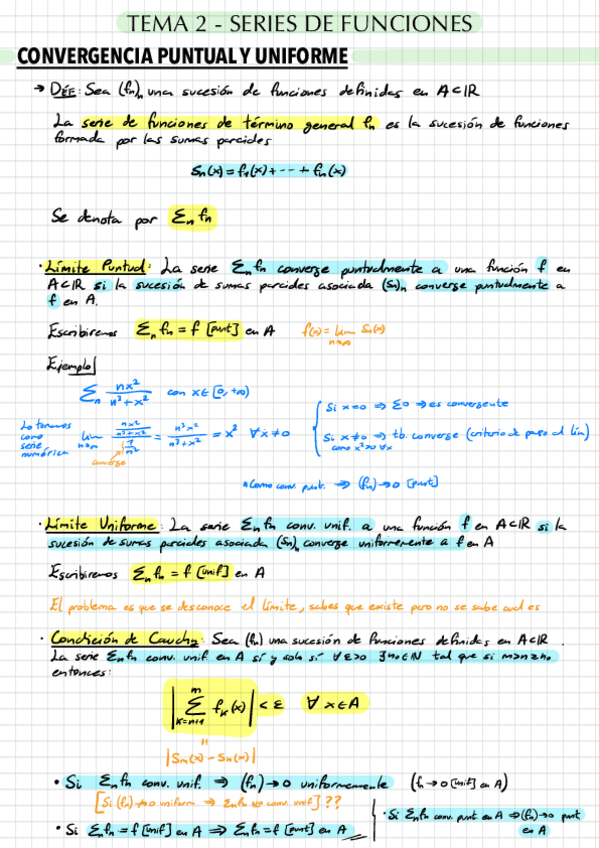 TEMA 2 - SERIES DE FUNCIONES
CONVERGENCIA PUNTUAL Y UNIFORME
→ DEF: Sea (fn)n una sucesión de funciones definidas en A⊂IR
La serie de funciones de término general fn es la sucesión de funciones
formada por las sumas parciales
Sn(x) = f1(x) + --- + fn(x)
Se denota por Σn fn
· Límite Puntual: La serie Σn fn converge puntualmente a una función f en
A⊂IR si la sucesión de sumas parciales asociada (Sn)n converge puntualmente a
f en A.
Escribiremos Σn fn = f [punt] en A f(x) = lim n→∞ Sn(x)
Ejemplo
Σn nx²/(n³+x²) con x∈[0,+∞)
Lo tomamos como serie numérica lim n→∞ (nx²/(n³+x²))/(1/n²) = n³x²/(n³+x²) = x² ∀x≠0
converge
Si x=0 ⇒ Σ0 ⇒ es convergente
Si x≠0 ⇒ tb. converge (criterio de paso al lím)
como x²>0 ∀x
*Como conv. punt. ⇒ (fn)→0 [punt]
· Límite Uniforme: La serie Σn fn conv. unif. a una función f en A⊂IR si la
sucesión de sumas parciales asociada (Sn)n converge uniformemente a f en A
Escribiremos Σn fn = f [unif] en A
El problema es que se desconoce el límite, sabes que existe pero no se sabe cual es
· Condición de Cauchy: Sea (fn) una sucesión de funciones definidas en A⊂IR.
La serie Σn fn conv. unif en A sí y solo sí ∀ε>0 ∃n0∈IN tal que si m>n≥n0
entonces:
|Σ k=n+1 m fk(x)| < ε ∀ x∈A
=
|Sm(x) - Sn(x)|
• Si Σn fn conv. unif. ⇒ (fn)→0 uniformemente (fn→0 [unif] en A)
[Si (fn)↛0 uniform ⇒ Σn fn no conv. unif] ??
• Si Σn fn = f [unif] en A ⇒ Σn fn = f [punt] en A
· Si Σn fn conv. punt en A ⇒ (fn)→0 punt
en A